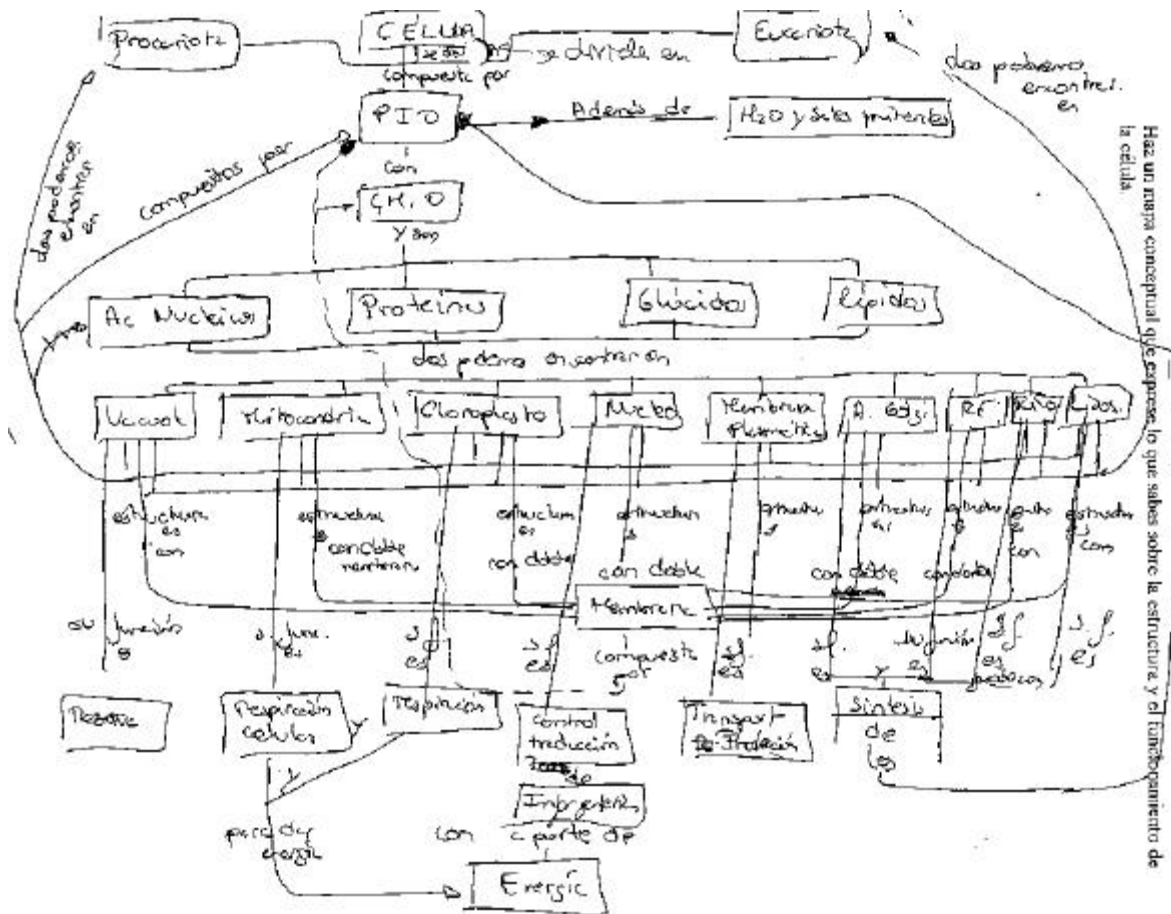 Haz un mapa conceptual que exprese lo que sabes sobre la estructura y el funcionamiento de
la célula.
Procariota
CÉLULA
Eucariota
se divide en
compuesta por
los podremos
encontrar
en
PIO
Además de
H2O y Sales
con
compuestos por
los podemos
encontrar
en
y son
Ac Nucleicos
Proteínas
Glúcidos
Lípidos
los podemos encontrar en
Vacuola
Mitocondria
Cloroplasto
Núcleo
Membrana
Plasmática
A. Golgi
RE.
Ribo
Lisos.
estructura
es
con
estructura
con doble
membrana
estructura
es
con doble
estructura
con doble
estructura
estructura
es
con doble
con
estructura
con
Membrana
compuesta
por
su función
es
s. func.
es
s. f.
es
s. f.
es
s. f.
es
s. f.
es
su función
es
s. f.
es
s. f.
es
Respiración
celular
y
respiración
control
traducción
de
Transport
Protección
y
Síntesis
de
los
y
para dar
energía
con aporte de
Energía